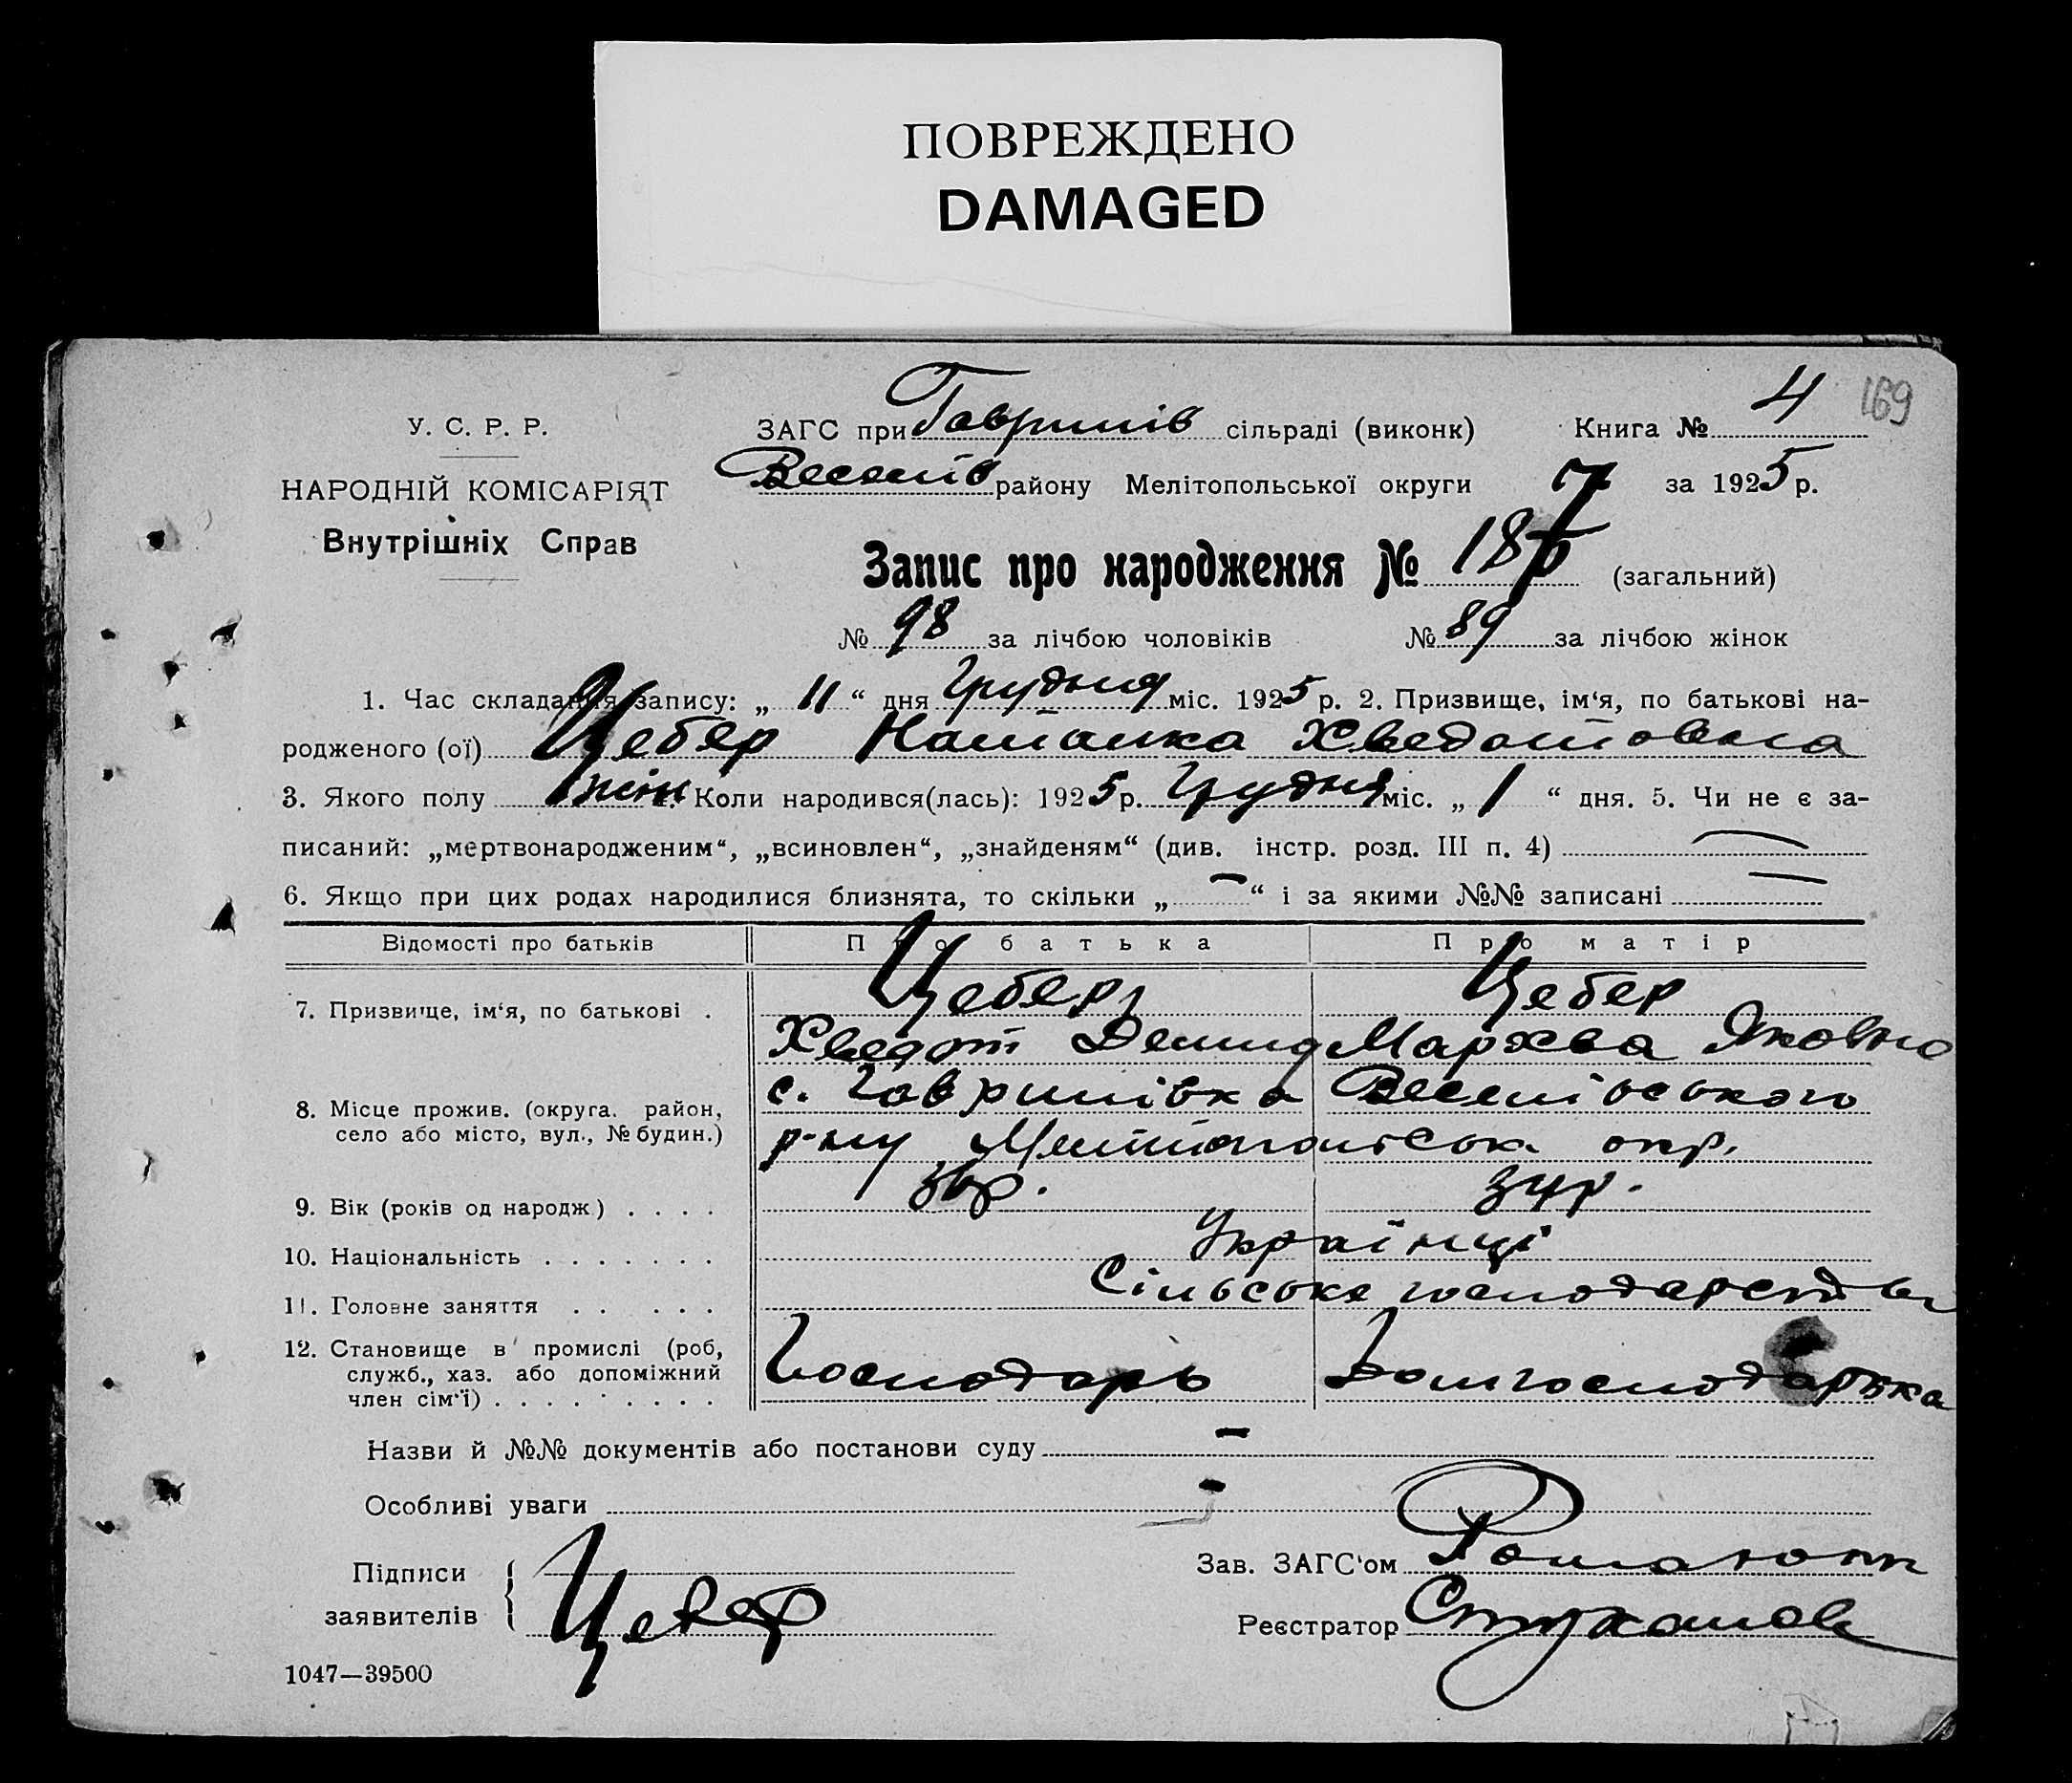 ПОВРЕЖДЕНО
DAMAGED
169
У. С. Р. Р.
НАРОДНІЙ КОМІСАРІЯТ
Внутрішніх Справ
ЗАГС при Гаврилів сільраді (виконк) Книга № 4
Веселів району Мелітопольської округи за 1925 р.
Запис про народження № 187 (загальний)
№ 98 за лічбою чоловіків № 89 за лічбою жінок
1. Час складання запису: „ 11 “ дня Грудня міс. 1925 р. 2. Призвище, ім‘я, по батькові на-
родженого (ої) Цебер Наталка Хведотовна
3. Якого полу жін. Коли народився(лась): 1925 р. Грудня міс. „ 1 “ дня. 5. Чи не є за-
писаний: „мертвонародженим“, „всиновлен“, „знайденям“ (див. інстр. розд. III п. 4) —
6. Якщо при цих родах народилися близнята, то скільки „ — “ і за якими №№ записані —
Відомості про батьків Про батька Про матір
7. Призвище, ім‘я, по батькові . Цебер Цебер
Хведот Демид Мархва Яковна
8. Місце прожив. (округа. район, село або місто, вул., № будин.) с. Гаврилівка Веселівського
р-ну Мелітопольськ окр.
9. Вік (років од народж) . . . . 36р. 34р.
10. Національність . . . . . . . Українці
11. Головне заняття . . . . . Сільське господарство
12. Становище в промислі (роб,
служб., хаз. або допоміжний
член сім‘ї) . . . . . . . . Господарь Домгосподарька
Назви й №№ документів або постанови суду —
Особливі уваги —
Підписи
заявителів Цебер
Зав. ЗАГС‘ом
Реєстратор
1047—39500